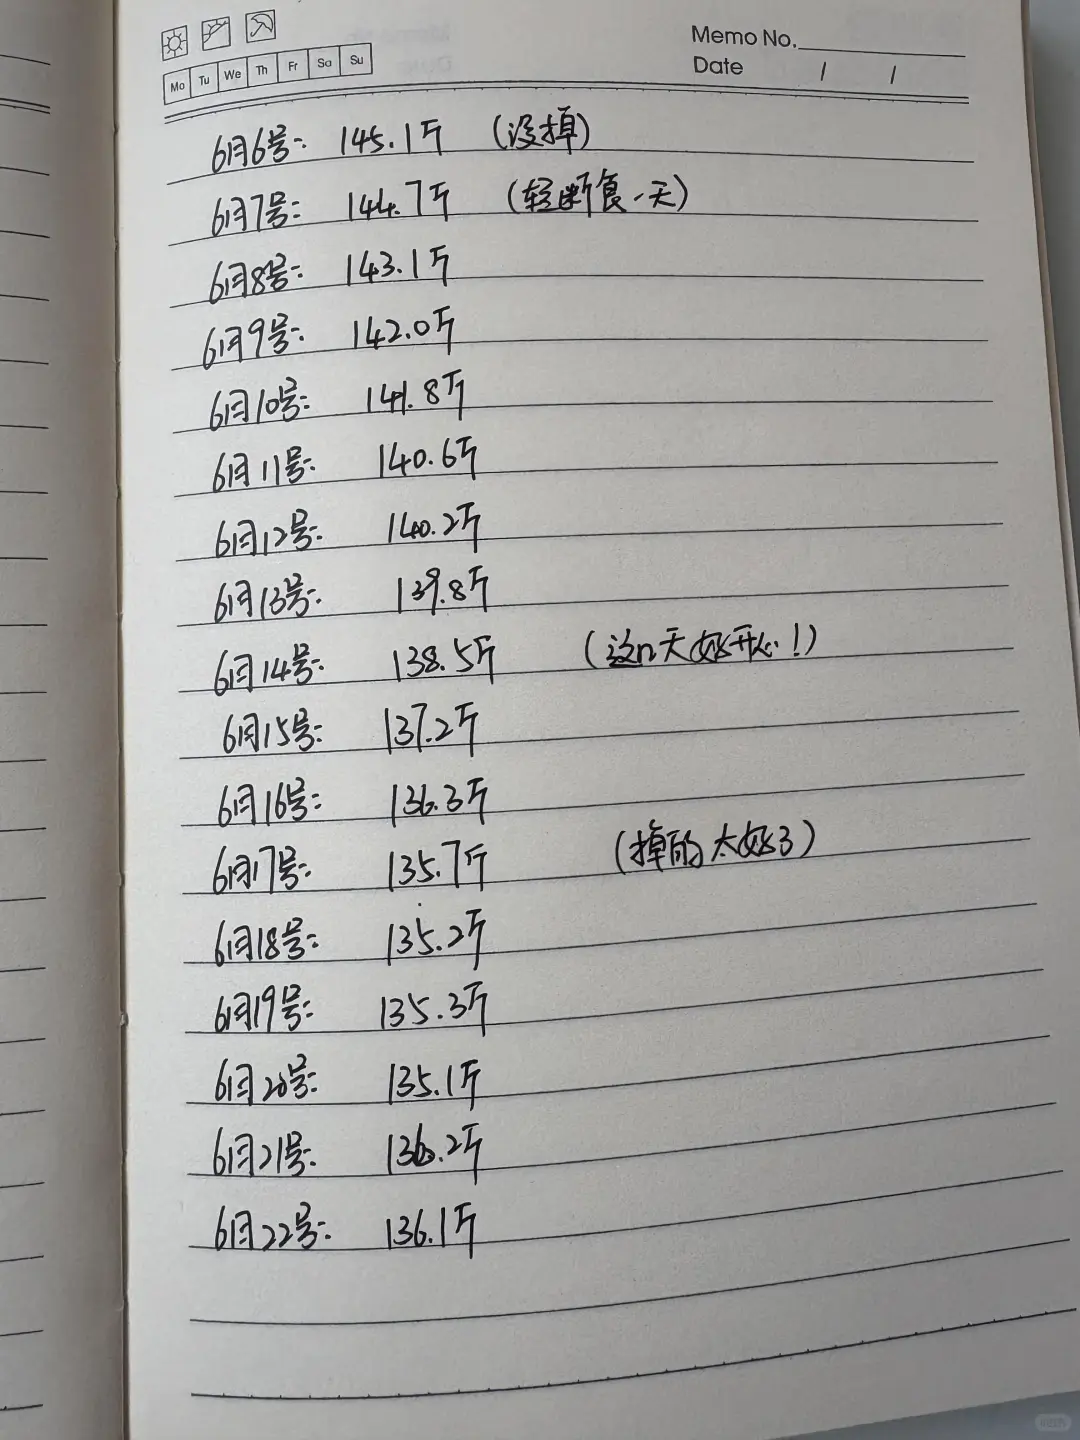 Memo No.
Mo Tu We Th Fr Sa Su
Date / /
6月6号: 145.1斤 (没掉)
6月7号: 144.7斤 (轻断食一天)
6月8号: 143.1斤
6月9号: 142.0斤
6月10号: 141.8斤
6月11号: 140.6斤
6月12号: 140.2斤
6月13号: 139.8斤
6月14号: 138.5斤 (这几天好开心!)
6月15号: 137.2斤
6月16号: 136.3斤
6月17号: 135.7斤 (掉的太好了)
6月18号: 135.2斤
6月19号: 135.3斤
6月20号: 135.1斤
6月21号: 136.2斤
6月22号: 136.1斤